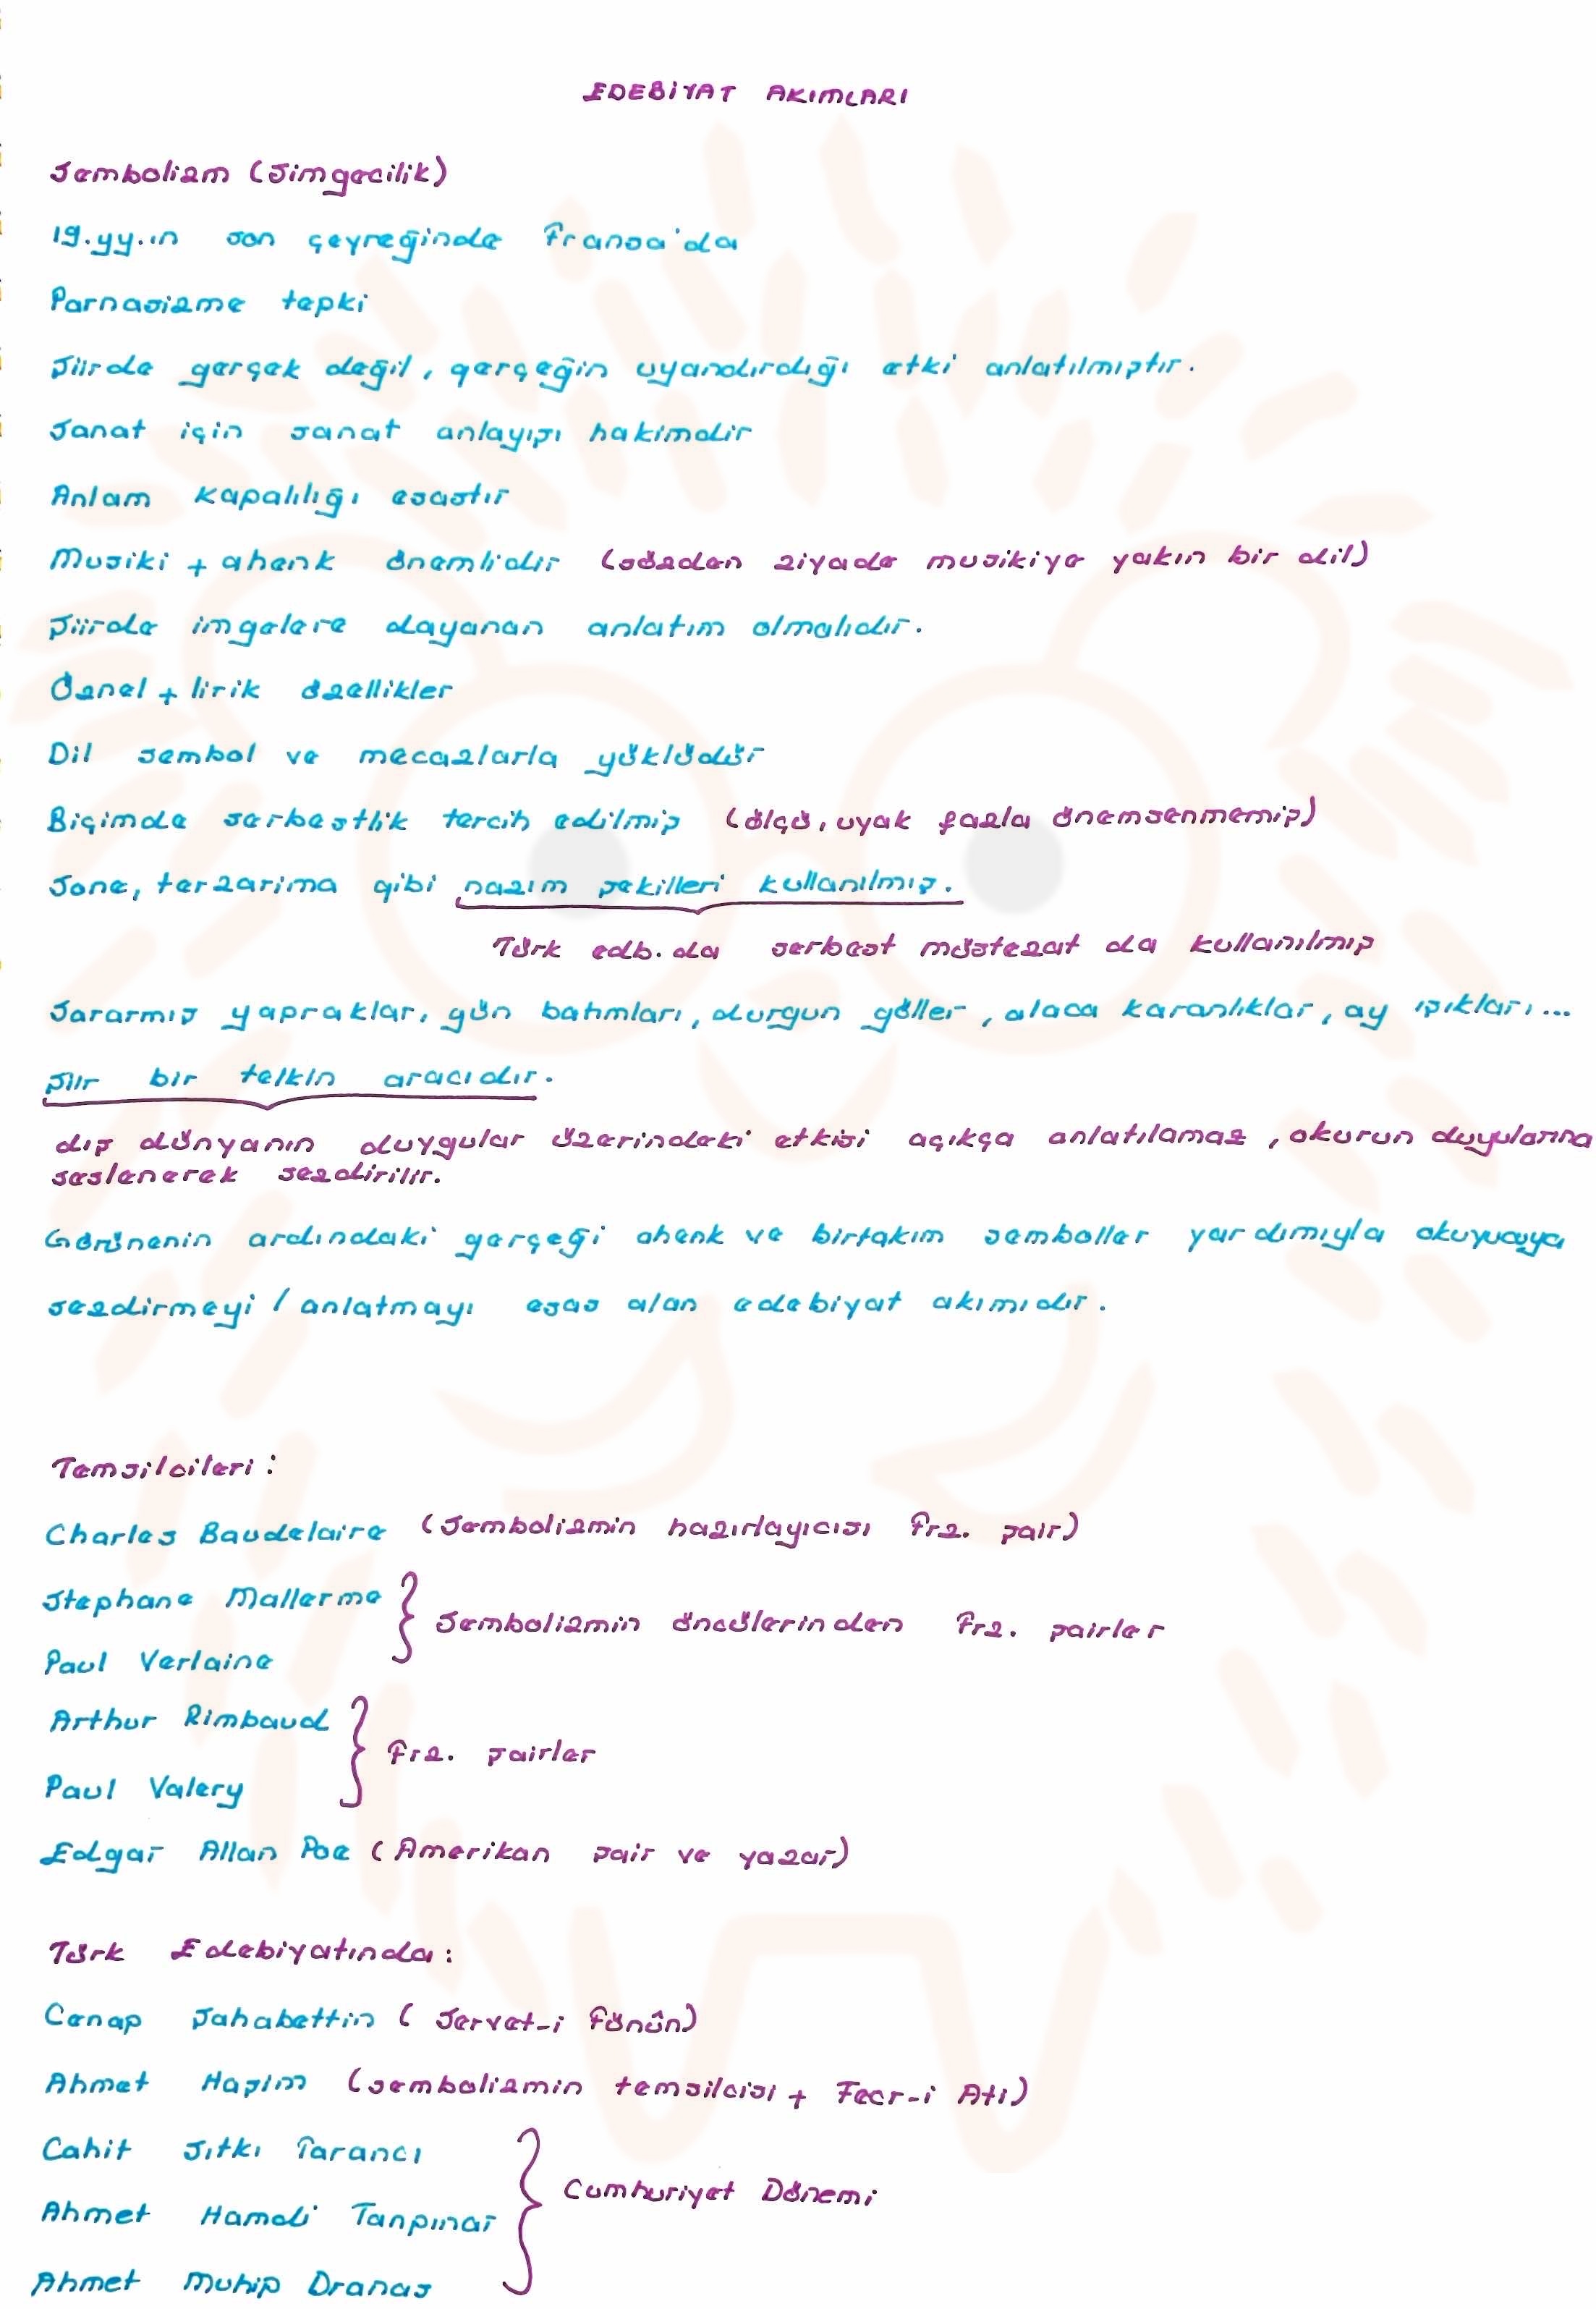 EDEBİYAT AKIMLARI
Sembolizm (Simgecilik)
19.yy.ın son çeyreğinde Fransa'da
Parnasizme tepki
Şiirde gerçek değil, gerçeğin uyandırdığı etki anlatılmıştır.
Sanat için sanat anlayışı hakimdir
Anlam kapalılığı esastır
Musiki + ahenk önemlidir (sözden ziyade musikiye yakın bir dil)
Şiirde imgelere dayanan anlatım olmalıdır.
Öznel + lirik özellikler
Dil sembol ve mecazlarla yüklüdür
Biçimde serbestlik tercih edilmiş (ölçü, uyak fazla önemsenmemiş)
Sone, terzarima gibi nazım şekilleri kullanılmış.
Türk edb.da serbest müstezat da kullanılmış
Sararmış yapraklar, gün batımları, durgun göller, alaca karanlıklar, ay ışıkları...
Şiir bir telkin aracıdır.
dış dünyanın duygular üzerindeki etkisi açıkça anlatılamaz, okurun duyularına
seslenerek sezdirilir.
Görünenin ardındaki gerçeği ahenk ve birtakım semboller yardımıyla okuyucuya
sezdirmeyi / anlatmayı esas alan edebiyat akımıdır.
Temsilcileri:
Charles Baudelaire (Sembolizmin hazırlayıcısı Frz. şair)
Stephane Mallerme
Sembolizmin öncülerinden Frz. şairler
Paul Verlaine
Arthur Rimbaud
Frz. şairler
Paul Valery
Edgar Allan Poe (Amerikan şair ve yazar)
Türk Edebiyatında:
Cenap Şahabettin (Servet-i Fünûn)
Ahmet Haşim (sembolizmin temsilcisi + Fecr-i Ati)
Cahit Sıtkı Tarancı
Cumhuriyet Dönemi
Ahmet Hamdi Tanpınar
Ahmet Muhip Dranas